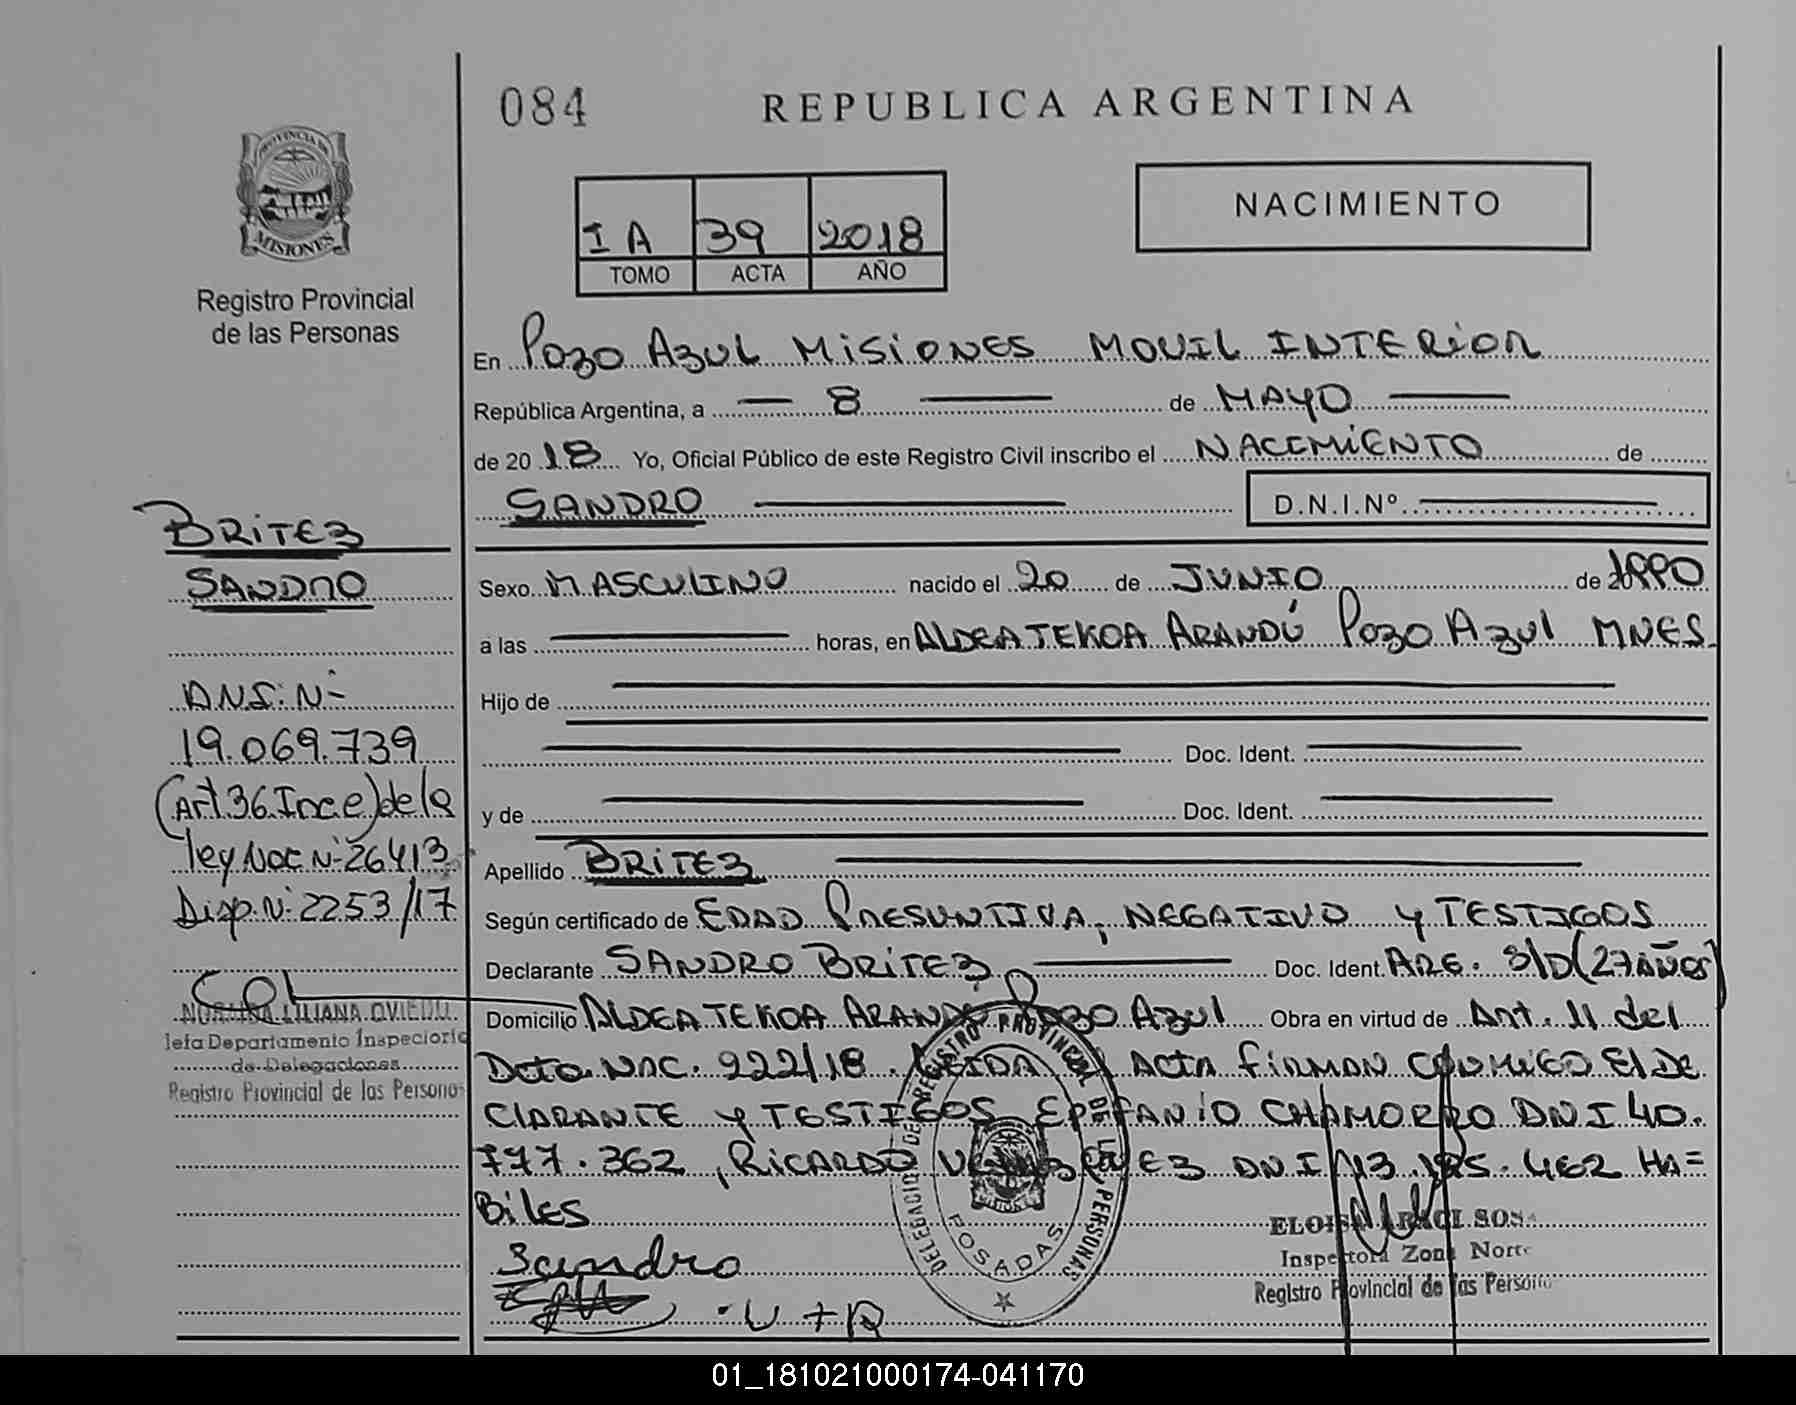 084 REPUBLICA ARGENTINA
NACIMIENTO
I A 39 2018
TOMO ACTA AÑO
PROVINCIA DE
MISIONES
Registro Provincial
de las Personas
En Pozo Azul Misiones MOVIL INTERIOR
República Argentina, a 8 de MAYO
de 2018 Yo, Oficial Público de este Registro Civil inscribo el NACIMIENTO de
SANDRO D.N.I.Nº
BRITEZ
SANDRO
Sexo MASCULINO nacido el 20 de JUNIO de 1990
a las horas, en ALDEA TEKOA ARANDÚ Pozo Azul MNES.
Hijo de
Doc. Ident.
y de Doc. Ident.
D.N.I. N-
19.069.739
(Art 36 Inc e) de la
ley Nac N- 26413
Disp. N- 2253/17
Apellido BRITEZ
Según certificado de EDAD PRESUNTIVA, NEGATIVO y TESTIGOS
Declarante SANDRO BRITEZ Doc. Ident. ARG. S/D (27 AÑOS)
Domicilio ALDEA TEKOA ARANDÚ Pozo Azul Obra en virtud de Art. 11 del
Dcto NAC. 922/18. LEIDA EL ACTA FIRMAN CONMIGO El DE
CLARANTE y TESTIGOS EPIFANIO CHAMORRO DNI 40.
777.362, RICARDO DNI 13. 462 HA=
BILES
NORMA LILIANA OVIEDO
Jefa Departamento Inspectoria
de Delegaciones
Registro Provincial de las Personas
Sandro
U + R
DELEGACION DE REGISTRO PROVINCIAL DE LAS PERSONAS
MISIONES
POSADAS
ELOISA SOSA
Inspectora Zona Norte
Registro Provincial de las Personas
01_181021000174-041170